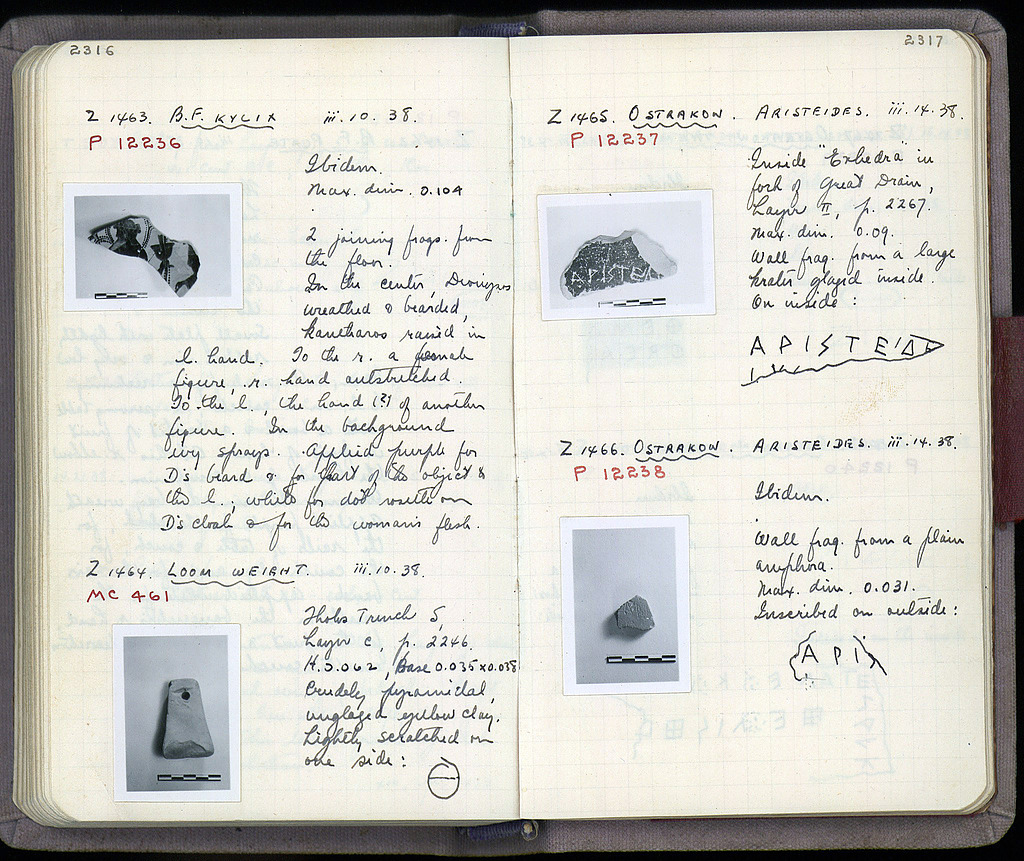 2316
Z 1463. B.F. KYLIX iii.10.38.
P 12236
Ibidem.
Max. dim. 0.104
2 joining frags. from
the floor.
In the center, Dionysos
wreathed & bearded,
kantharos raised in
l. hand. To the r. a female
figure, r. hand outstretched.
To the l., the hand (?) of another
figure. In the background
ivy sprays. Applied purple for
D's beard & for part of the object to
the l., white for dot rosette on
D's cloak & for the woman's flesh.
Z 1464. LOOM WEIGHT. iii.10.38.
MC 461
Tholos Trench S,
Layer c, p. 2246.
H. 0.062, Base 0.035 x 0.038
Crudely pyramidal,
unglazed yellow clay.
Lightly scratched on
one side:
2317
Z 1465. OSTRAKON. ARISTEIDES. iii.14.38.
P 12237
Inside "Exhedra" in
fork of Great Drain,
Layer II, p. 2267.
Max. dim. 0.09.
Wall frag. from a large
krater glazed inside.
On inside:
ΑΡΙΣΤΕΙΔ
Z 1466. OSTRAKON. ARISTEIDES. iii.14.38.
P 12238
Ibidem.
Wall frag. from a plain
amphora.
Max. dim. 0.031.
Inscribed on outside:
ΑΡΙ